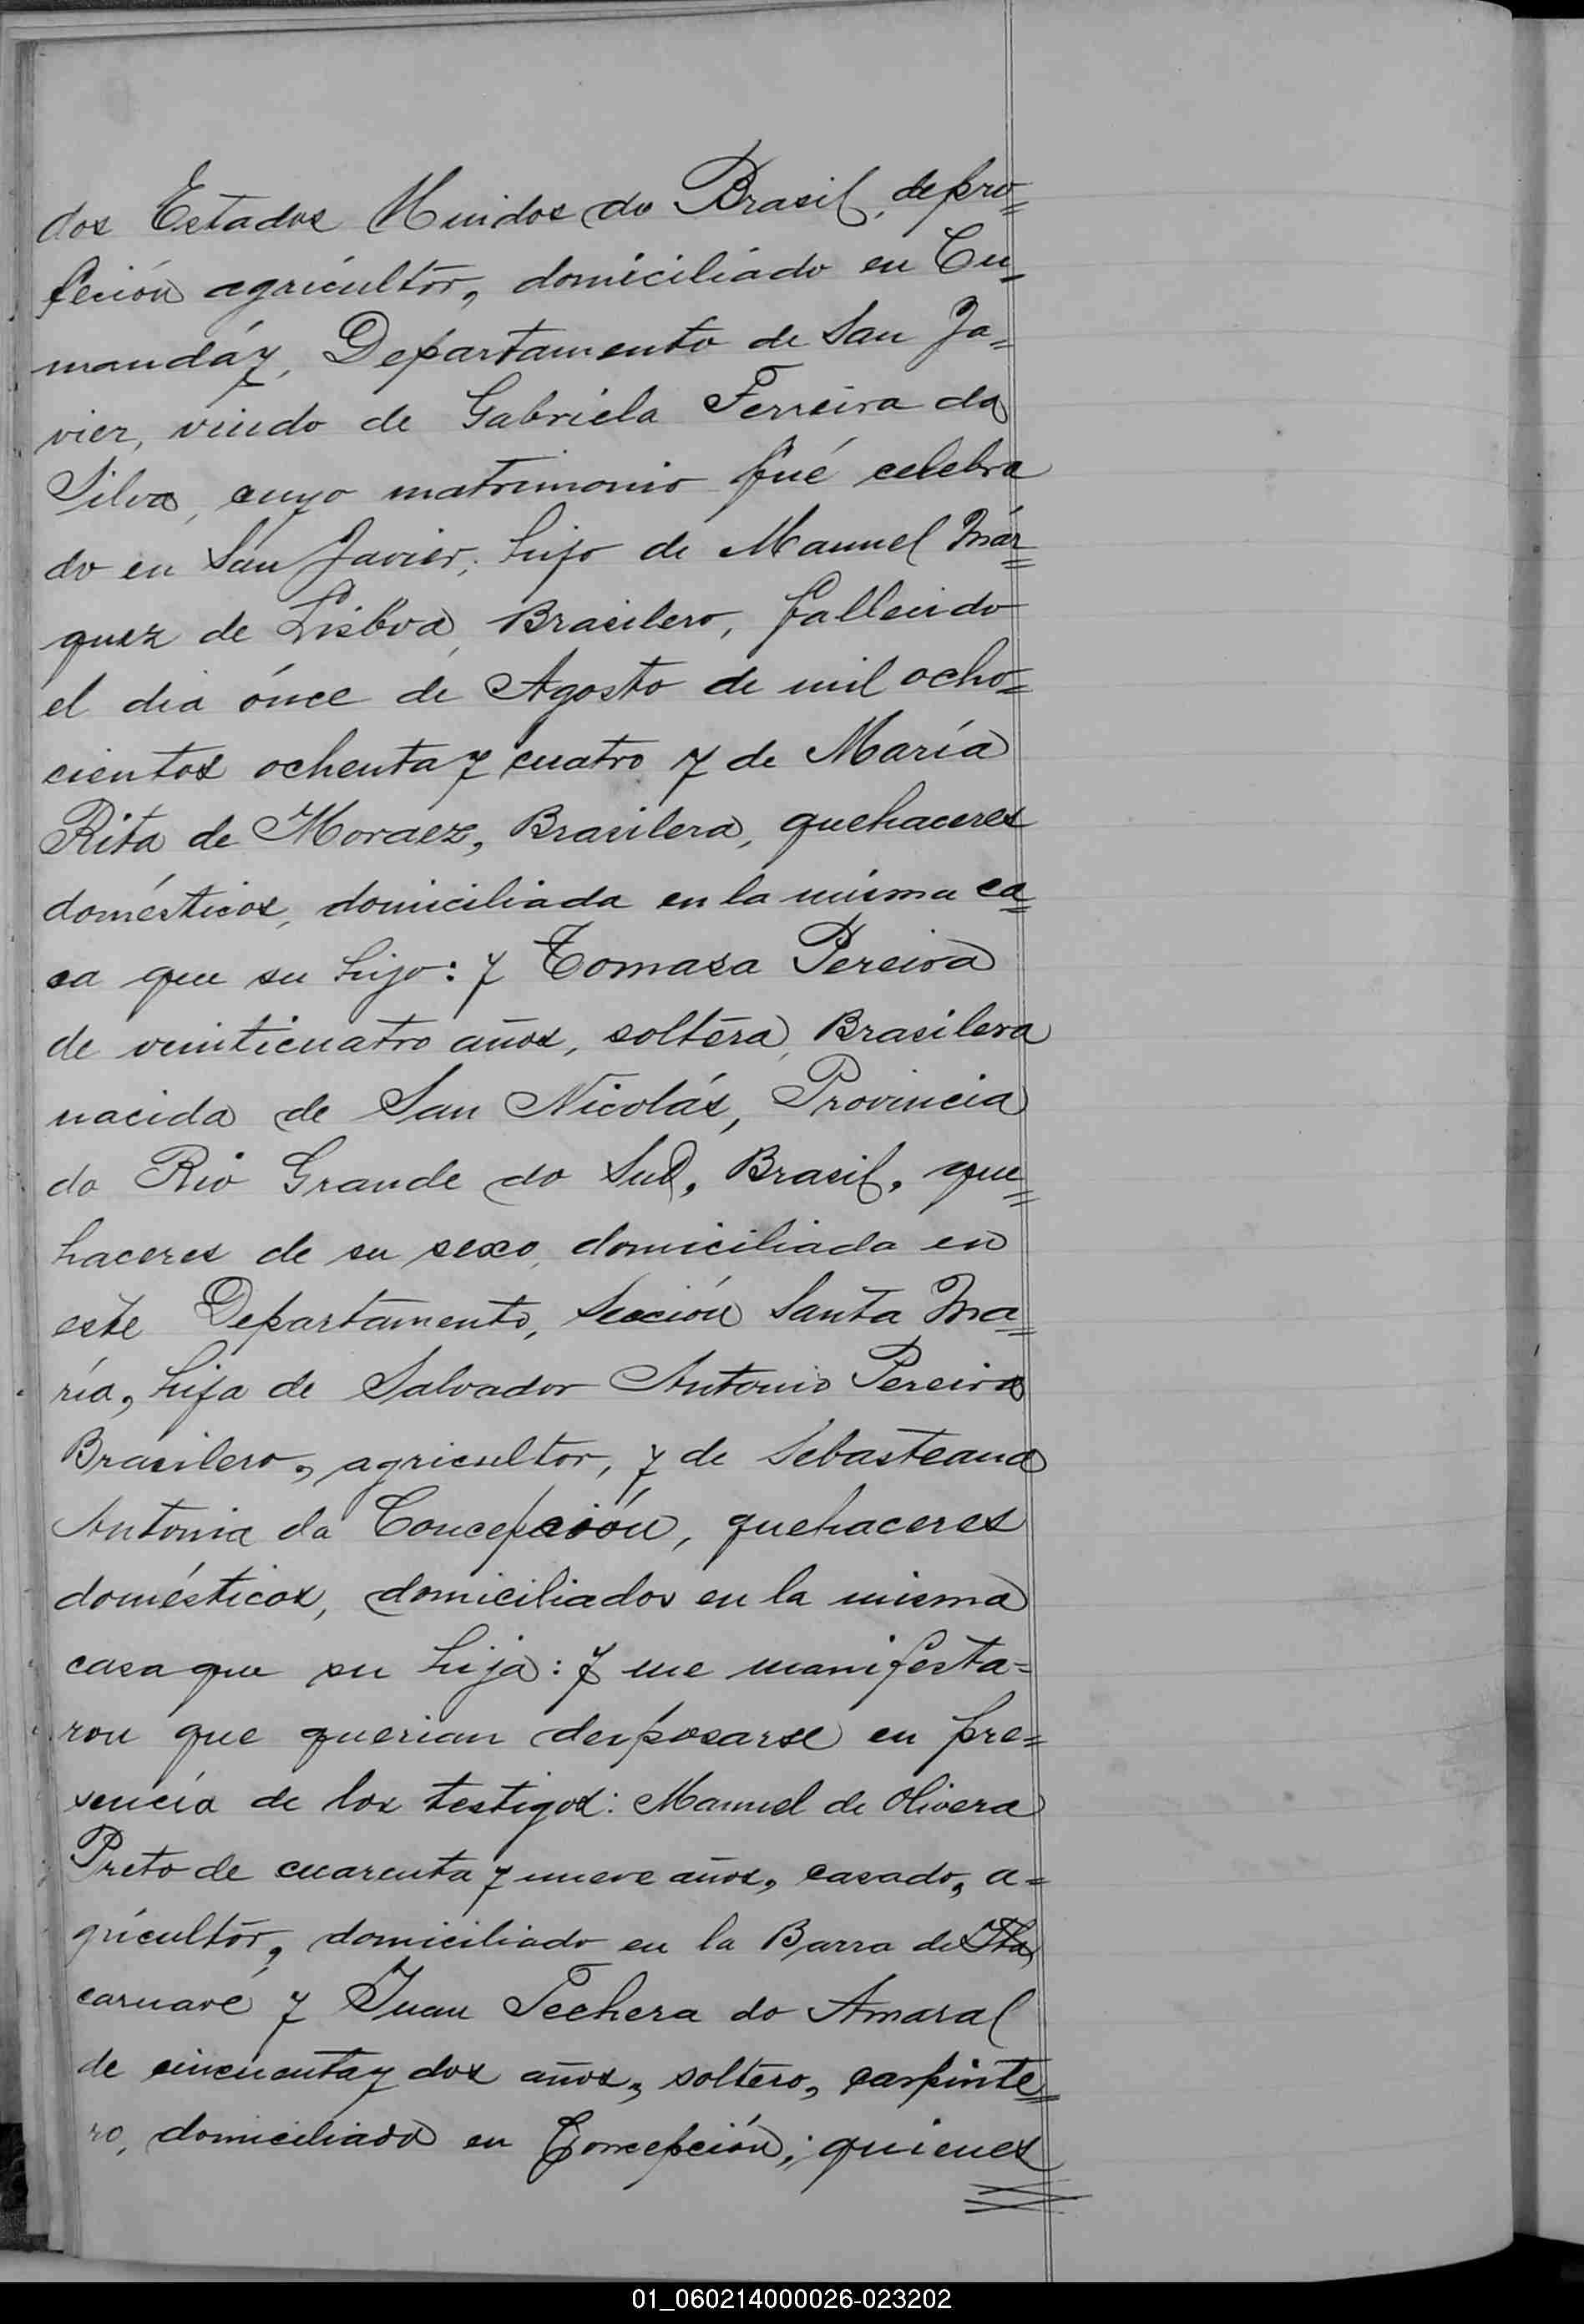 dos Estados Unidos do Brasil, de pro=
feción agricultor, domiciliado en Cu=
mandáy, Departamento de San Ja=
vier, viudo de Gabriela Ferreira da
Silva, cuyo matrimonio fué celebra
do en San Javier; hijo de Manuel Már=
quez de Lisboa, Brasilero, fallecido
el dia once de Agosto de mil ocho=
cientos ochenta y cuatro y de María
Rita de Moraez, Brasilera, quehaceres
domésticos, domiciliada en la misma ca=
sa que su hijo: y Tomasa Pereira
de veinticuatro años, soltera, Brasilera
nacida de San Nicolás, Provincia
do Rio Grande do Sul, Brasil, que=
haceres de su sexo, domiciliada en
este Departamento, Sección Santa Ma=
ría, hija de Salvador Antonio Pereira
Brasilero, agricultor, y de Sebasteana
Antonia da Concepción, quehaceres
domésticos, domiciliados en la misma
casa que su hija: y me manifesta=
ron que querian desposarse en pre=
sencia de los testigos: Manuel de Olivera
Preto de cuarenta y nueve años, casado, a=
gricultor, domiciliado en la Barra de Ita
caruaré y Juan Techera do Amaral
de cincuenta y dos años, soltero, carpinte=
ro, domiciliado en Concepción; quienes
01_060214000026-023202